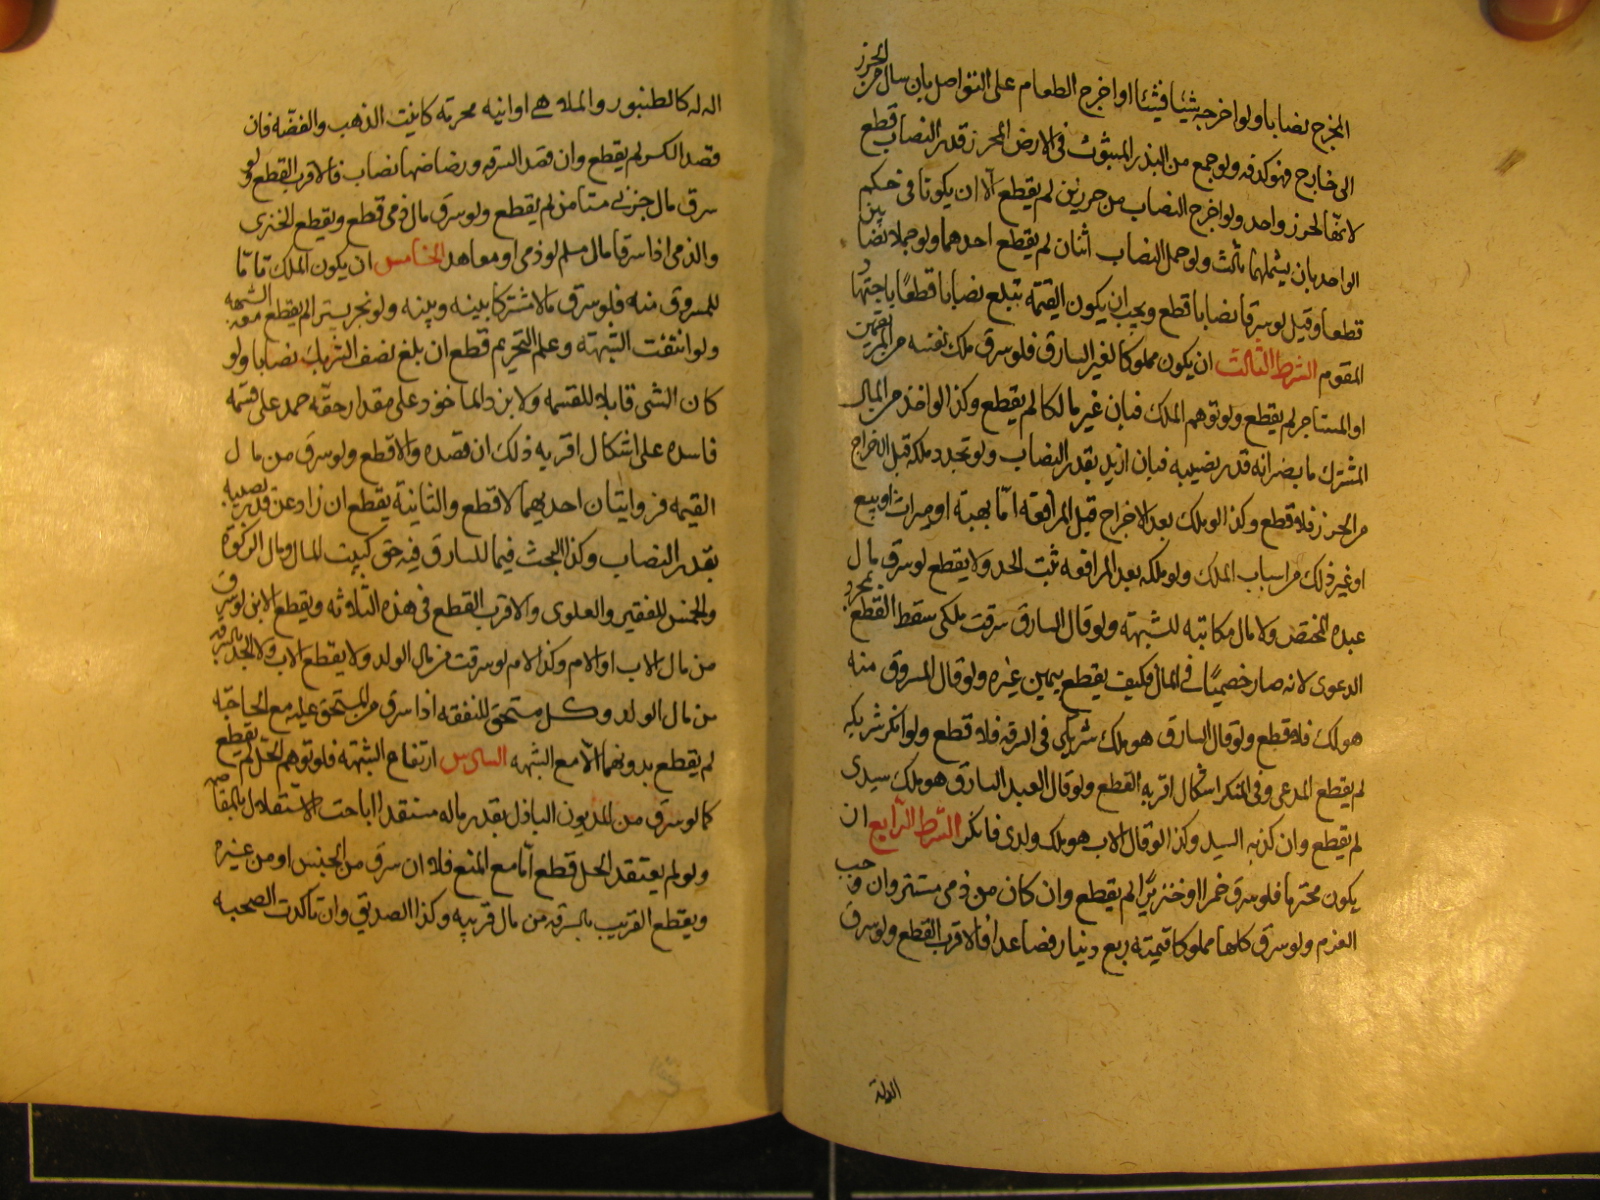 المخرج نصابا ولو اخرجه شيئا فشيئا او اخرج الطعام على التواصل بان سال من الحرز
الى خارج فهو كدفعه ولو جمع من البذر المبثوث فى الارض المحرز قدر النصاب قطع
لانها كحرز واحد ولو اخرج النصاب من حرزين لم يقطع الا ان يكونا فى حكم
الواحد بان يشملهما ثالث ولو حمل النصاب اثنان لم يقطع احدهما ولو حملا نصابين
قطعا وقيل لو سرقا نصابا قطع ويجب ان يكون القيمة تبلغ نصابا قطعا باجتهاد
المقوم الشرط الثالث ان يكون مملوكا لغير السارق فلو سرق ملك نفسه من المرتهن
او المستاجر لم يقطع ولو توهم الملك فبان غير مالك لم يقطع وكذا لو اخذ من المال
المشترك ما يظن انه قدر نصيبه فبان ازيد بقدر النصاب ولو تجدد ملكه قبل الاخراج
من الحرز فلا قطع وكذا لو ملك بعد الاخراج قبل المرافعة اما بهبة او ميراث او بيع
او غير ذلك من اسباب الملك ولو ملكه بعد المرافعه ثبت الحد ولا يقطع لو سرق مال
عبده المختص ولا مال مكاتبه للشبهة ولو قال السارق سرقت ملكى سقط القطع بمجرد
الدعوى لانه صار خصيما فى المال فكيف يقطع بيمين غيره ولو قال المسروق منه
هو لك فلا قطع ولو قال السارق هو ملك شريكى فى السرقه فلا قطع ولو انكر شريكه
لم يقطع المدعى وفى المنكر اشكال اقربه القطع ولو قال العبد السارق هو ملك سيدى
لم يقطع وان كذبه السيد وكذا لو قال الاب هو ملك ولدى فانكر الشرط الرابع ان
يكون محترما فلو سرق خمرا او خنزيرا لم يقطع وان كان من ذمى مستتر وان وجب
الغرم ولو سرق كلبا مملوكا قيمته ربع دينار فصاعدا فالاقرب القطع ولو سرق
اله له كالطنبور والملاهى او انيه محرمة كانية الذهب والفضه فان
قصد الكسر لم يقطع وان قصد السرقه ورضاضها نصاب فالاقرب القطع ولو
سرق مال حربى مستامن لم يقطع ولو سرق مال ذمى قطع ويقطع الحربى
والذمى اذا سرقا مال مسلم او ذمى او معاهد الخامس ان يكون الملك تاما
للمسروق منه فلو سرق مالا مشتركا بينه وبينه ولو بجزء يسير لم يقطع مع الشبهه
ولو انتفت الشبهة وعلم التحريم قطع ان بلغ نصف الشريك نصابا ولو
كان الشى قابلا للقسمه ولا يزد الماخوذ على مقدار حقه حمد على قسمه
فاسده على اشكال اقربه ذلك ان قصده والا قطع ولو سرق من مال
القيمه فروايتان احديهما لا قطع والثانية يقطع ان زاد عن قدر نصيبه
بقدر النصاب وكذا البحث فيما للسارق فيه حق كبيت المال ومال الزكوة
والخمس للفقير والعلوى والاقرب القطع فى هذه الثلاثه ويقطع الابن لو سرق
من مال الاب او الام وكذا الام لو سرقت من مال الولد ولا يقطع الاب ولا الجد بالسرقه
من مال الولد وكل مستحق للنفقه اذا سرق من المستحق عليه مع الحاجة
لم يقطع بدونها الا مع الشبهه السادس ارتفاع الشبهة فلو توهم الحل لم يقطع
كما لو سرق من المديون الباذل بقدر ماله معتقدا اباحة الاستقلال بالمقاصه
ولو لم يعتقد الحل قطع اما مع المنع فلا ان سرق من الجنس او من غيره
ويقطع القريب بالسرقه من مال قريبه وكذا الصديق وان تاكدت الصحبه